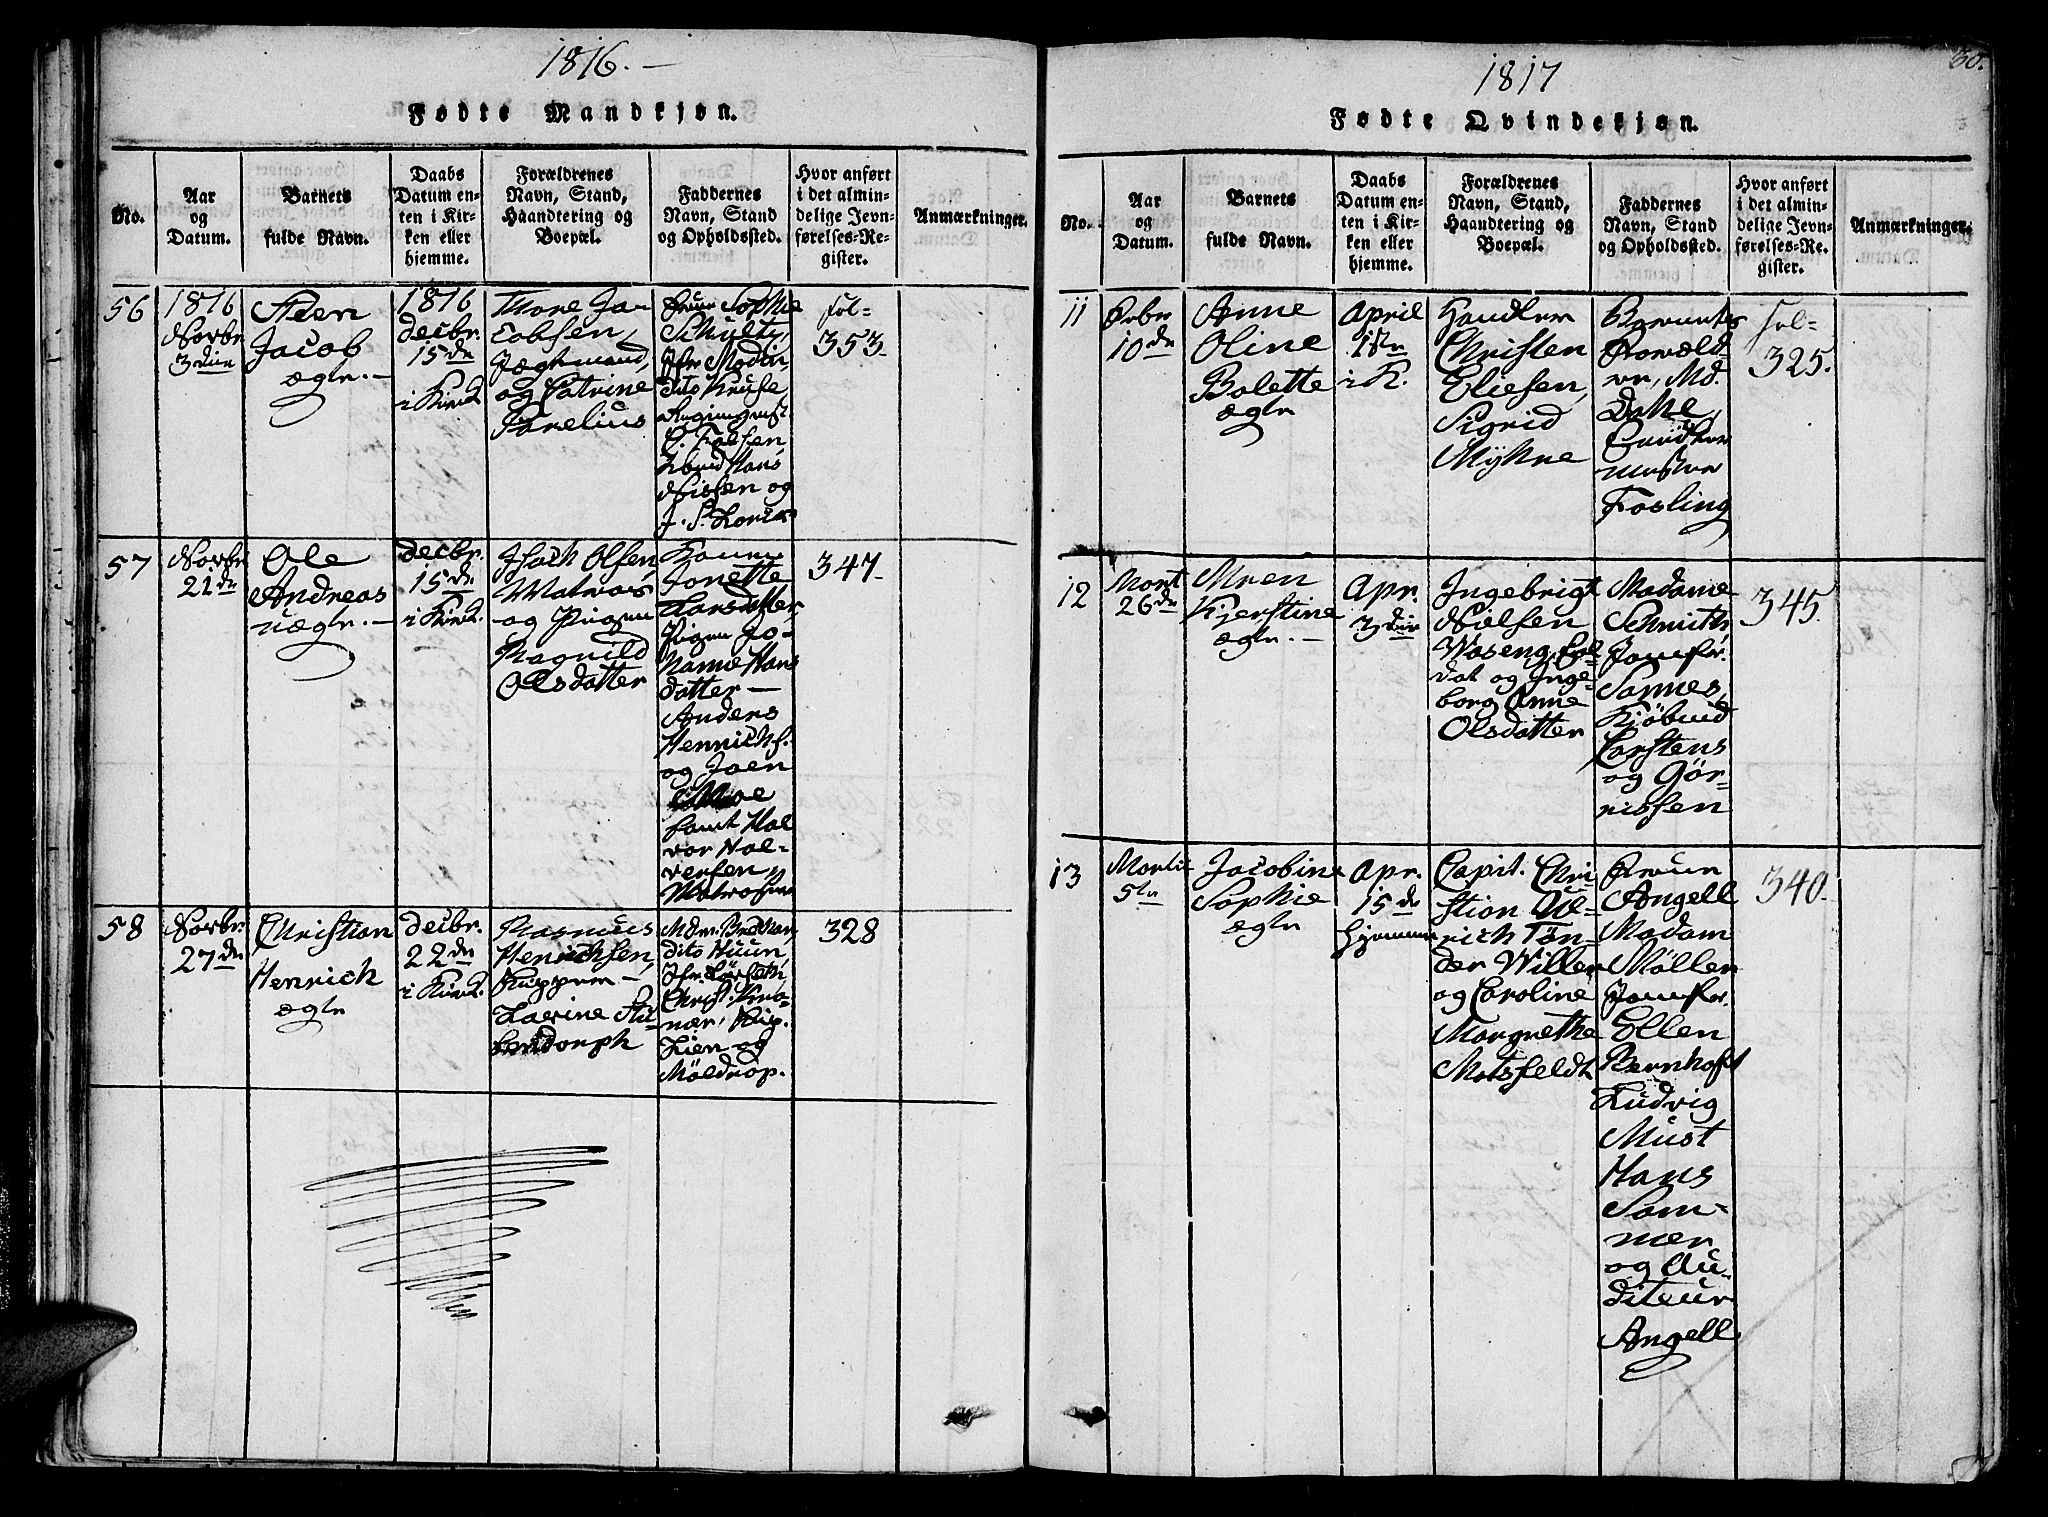 1816. —
Fødte Mandkjøn.
No.
Aar
og
Datum.
Barnets
fulde Navn.
Daabs
Datum en-
ten i Kir-
ken eller
hjemme.
Forældrenes
Navn, Stand,
Haandtering og
Boepæl.
Faddernes
Navn, Stand
og Opholdssted.
Hvor anført
i det almin-
delige Jevn-
førelses-Re-
gister.
Anmærkninger.
56
1816
Novbr
3die
Steen
Jacob
ægte. —
1816
decbr.
15de
i Kirck.
Thore Ja-
cobsen,
Jægtmand,
og Catrine
Parelius
Frue Sophie
Schultz,
Jfr Modin,
dito Kruse
C. Falsen
Hans
Nissen og
J. P. Lorck
fol-
353.
57
Novbr
21de
Ole
Andreas
uægte. —
decbr.
15de
i Kirck.
Isach Olsen,
Matros
og Pigen
Ragnild
Olsdatter
Konen
Jonette
Larsdatter,
Pigen Jo-
hanne Hans
datter —
Anders
Henrichs.
og Joen
Moe
samt Hal
vor Hal-
versen,
Matroser
347.
58
Novbr.
27de
Christian
Henrich
ægte
decbr.
22de
i Kirck.
Rasmus
Henrichsen,
Skipper —
Lavine Stu-
bendorph
Mdm. Bredkar,
dito Huun,
Jfr. Lorck,
Christ.
Skip.
Lien og
Møldrop.
328
30.
1817
Fødte Qvindekjøn.
No.
Aar
og
Datum.
Barnets
fulde Navn.
Daabs
Datum en-
ten i Kir-
ken eller
hjemme.
Forældrenes
Navn, Stand,
Haandtering og
Boepæl.
Faddernes
Navn, Stand
og Opholdssted.
Hvor anført
i det almin-
delige Jevn-
førelses-Re-
gister.
Anmærkninger.
11
Febr
10de
Anne
Oline
Bolette
ægte
April
1ste
i K.
Handler
Christen
Eliesen,
Sigrid
Myhre
Barnets
Foræld-
re, Md.
Dahl,
mester
Fosling
fol-
325.
12
Mart
26de
Maren
Kjerstine
ægte. —
Apr.
3die
Ingebrigt
Nielsen
Waseng, Sol-
dat og Inge-
borg Anne
Olsdatter
Madame
Schmith
Jomfr.
Sannes,
Kjöbmd
Carstens
og Gör-
rissen
345.
13
Martii
5te
Jacobine
Sophie
ægte
Apr.
15de
hjemme
Capit. Chri-
stian Ul-
rich Tön-
der Willer
og Caroline
Margrethe
Motsfeldt
Fruen
Angell
Madam
Möller
Jomfr.
Ellen
Bernhoft
Ludvig
Must
Hans
Som-
mer
og Au-
diteur
Angell.
340.